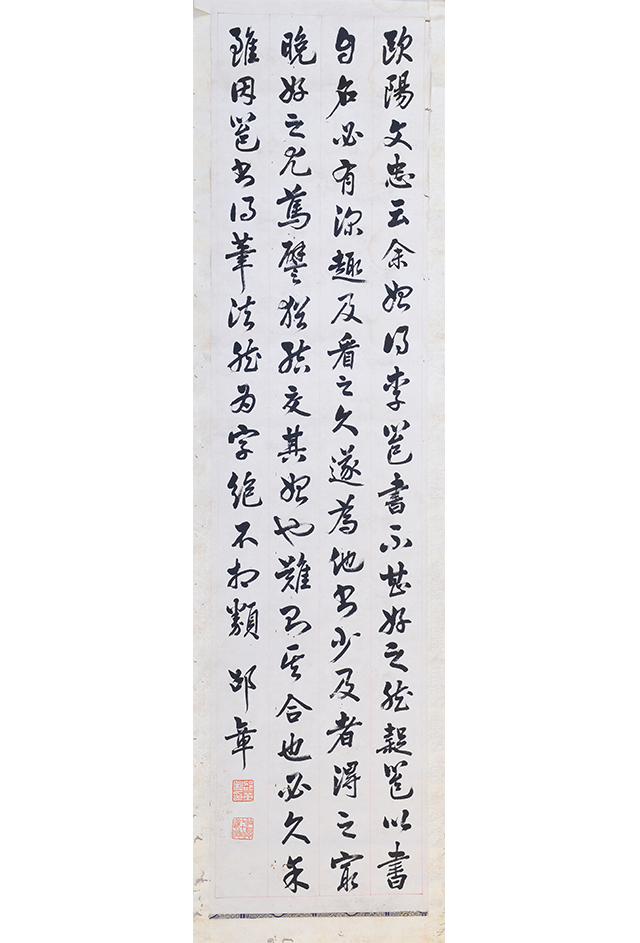 歐陽文忠云余始得李邕書不甚好之然疑邕以書
自名必有深趣及看之久遂為他書少及者得之最
晚好之尤篤譬猶結交其始也難則其合也必久余
雖因邕書得筆法然為字絕不相類 邵章